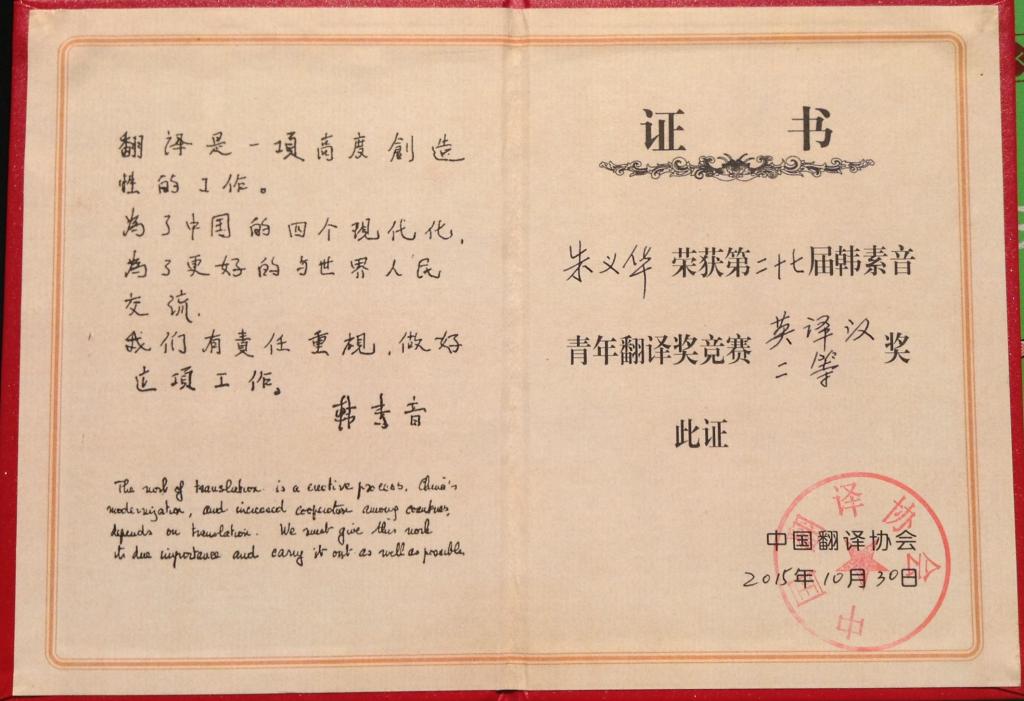 翻译是一項高度創造
性的工作。
为了中国的四个现代化,
为了更好的与世界人民
交流,
我们有責任重視,做好
这項工作。
韩素音
The work of translation is a creative process. China's
modernization, and increased cooperation among countries,
depends on translation. We must give this work
its due importance and carry it out as well as possible.
证书
朱义华 荣获第二十七届韩素音
青年翻译奖竞赛 英译汉二等 奖
此证
中国翻译协会
2015年10月30日
中国译协会